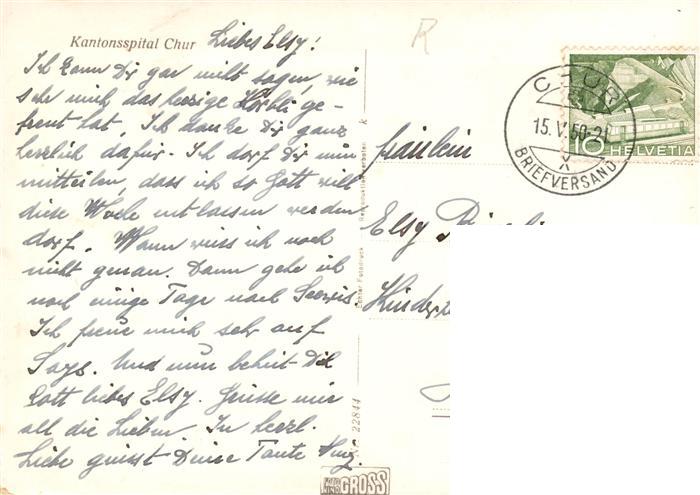 Kantonsspital Chur Liebes Elsy!
Ich kann Dir gar nicht sagen, wie
sehr mich das herzige Körbli ge-
freut hat. Ich danke Dir ganz
herzlich dafür. Ich darf Dir nun
mitteilen, dass ich so Gott will
diese Woche entlassen werden
darf. Wann weiss ich noch
nicht genau. Dann gehe ich
noch einige Tage nach Seewis
Ich freue mich sehr auf
Says. Und nun behüt Dich
Gott liebes Elsy. Grüsse mir
all die Lieben. In herzl.
Liebe grüsst Deine Tante
R
CHUR
15.V.50-2
X
BRIEFVERSAND
10 HELVETIA
Fräulein
Elsy
Echter Fotodruck Reproduktion verboten
22844
GROSS